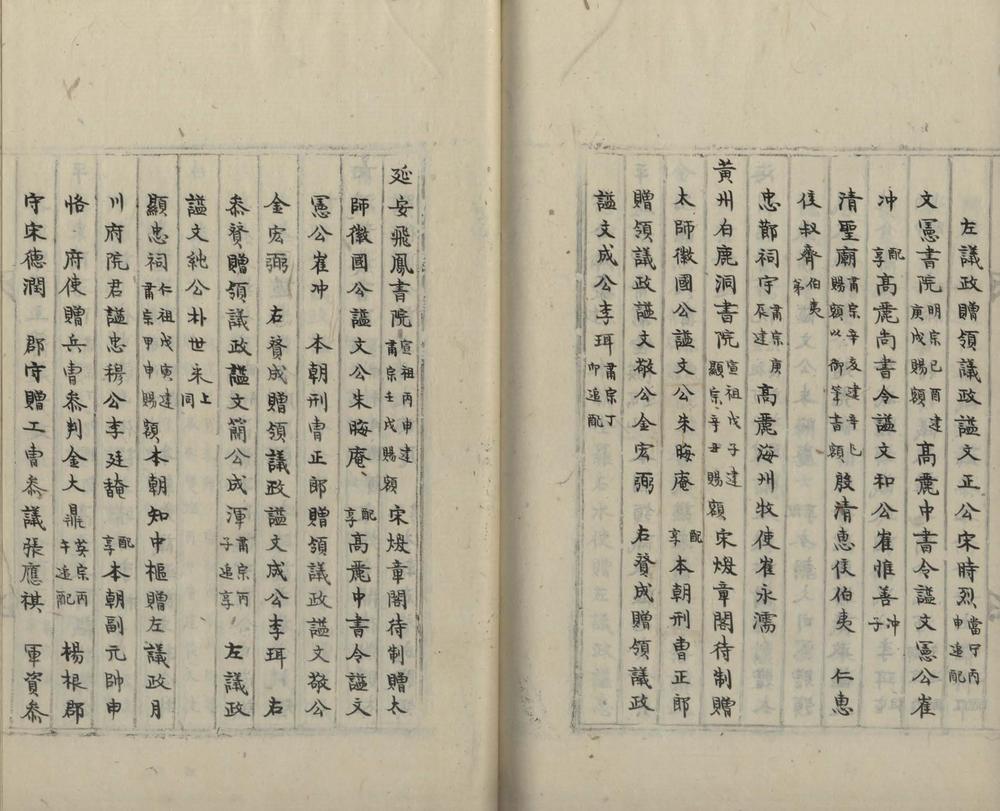 左議政贈領議政謚文正公宋時烈當宁丙申追配
文憲書院明宗己酉建庚戌賜額高麗中書令謚文憲公崔
冲配享高麗尚書令謚文和公崔惟善冲子
清聖廟肅宗辛亥建辛巳賜額以御筆書額殷清惠侯伯夷 仁惠
侯叔齊伯夷第
忠節祠宇肅宗庚辰建高麗海州牧使崔永濡
黃州白鹿洞書院宣祖戊子建顯宗辛丑賜額宋煥章閣待制贈
太師徽國公謚文公朱晦庵配享本朝刑曹正郎
贈領議政謚文敬公金宏弼 右贊成贈領議政
謚文成公李珥肅宗丁卯追配
延安飛鳳書院宣祖丙申建肅宗壬戌賜額宋煥章閣待制贈太
師徽國公謚文公朱晦庵配享高麗中書令謚文
憲公崔冲 本朝刑曹正郎贈領議政謚文敬公
金宏弼 右贊成贈領議政謚文成公李珥 右
叅贊贈領議政謚文簡公成渾肅宗丙子追享 左議政
謚文純公朴世采上同
顯忠祠仁祖戊寅建肅宗甲申賜額本朝知中樞贈左議政月
川府院君謚忠穆公李廷馣配享本朝副元帥申
恪 府使贈兵曹叅判金大鼎英宗丙午追配 楊根郡
守宋德潤 郡守贈工曹叅議張應祺 軍資叅